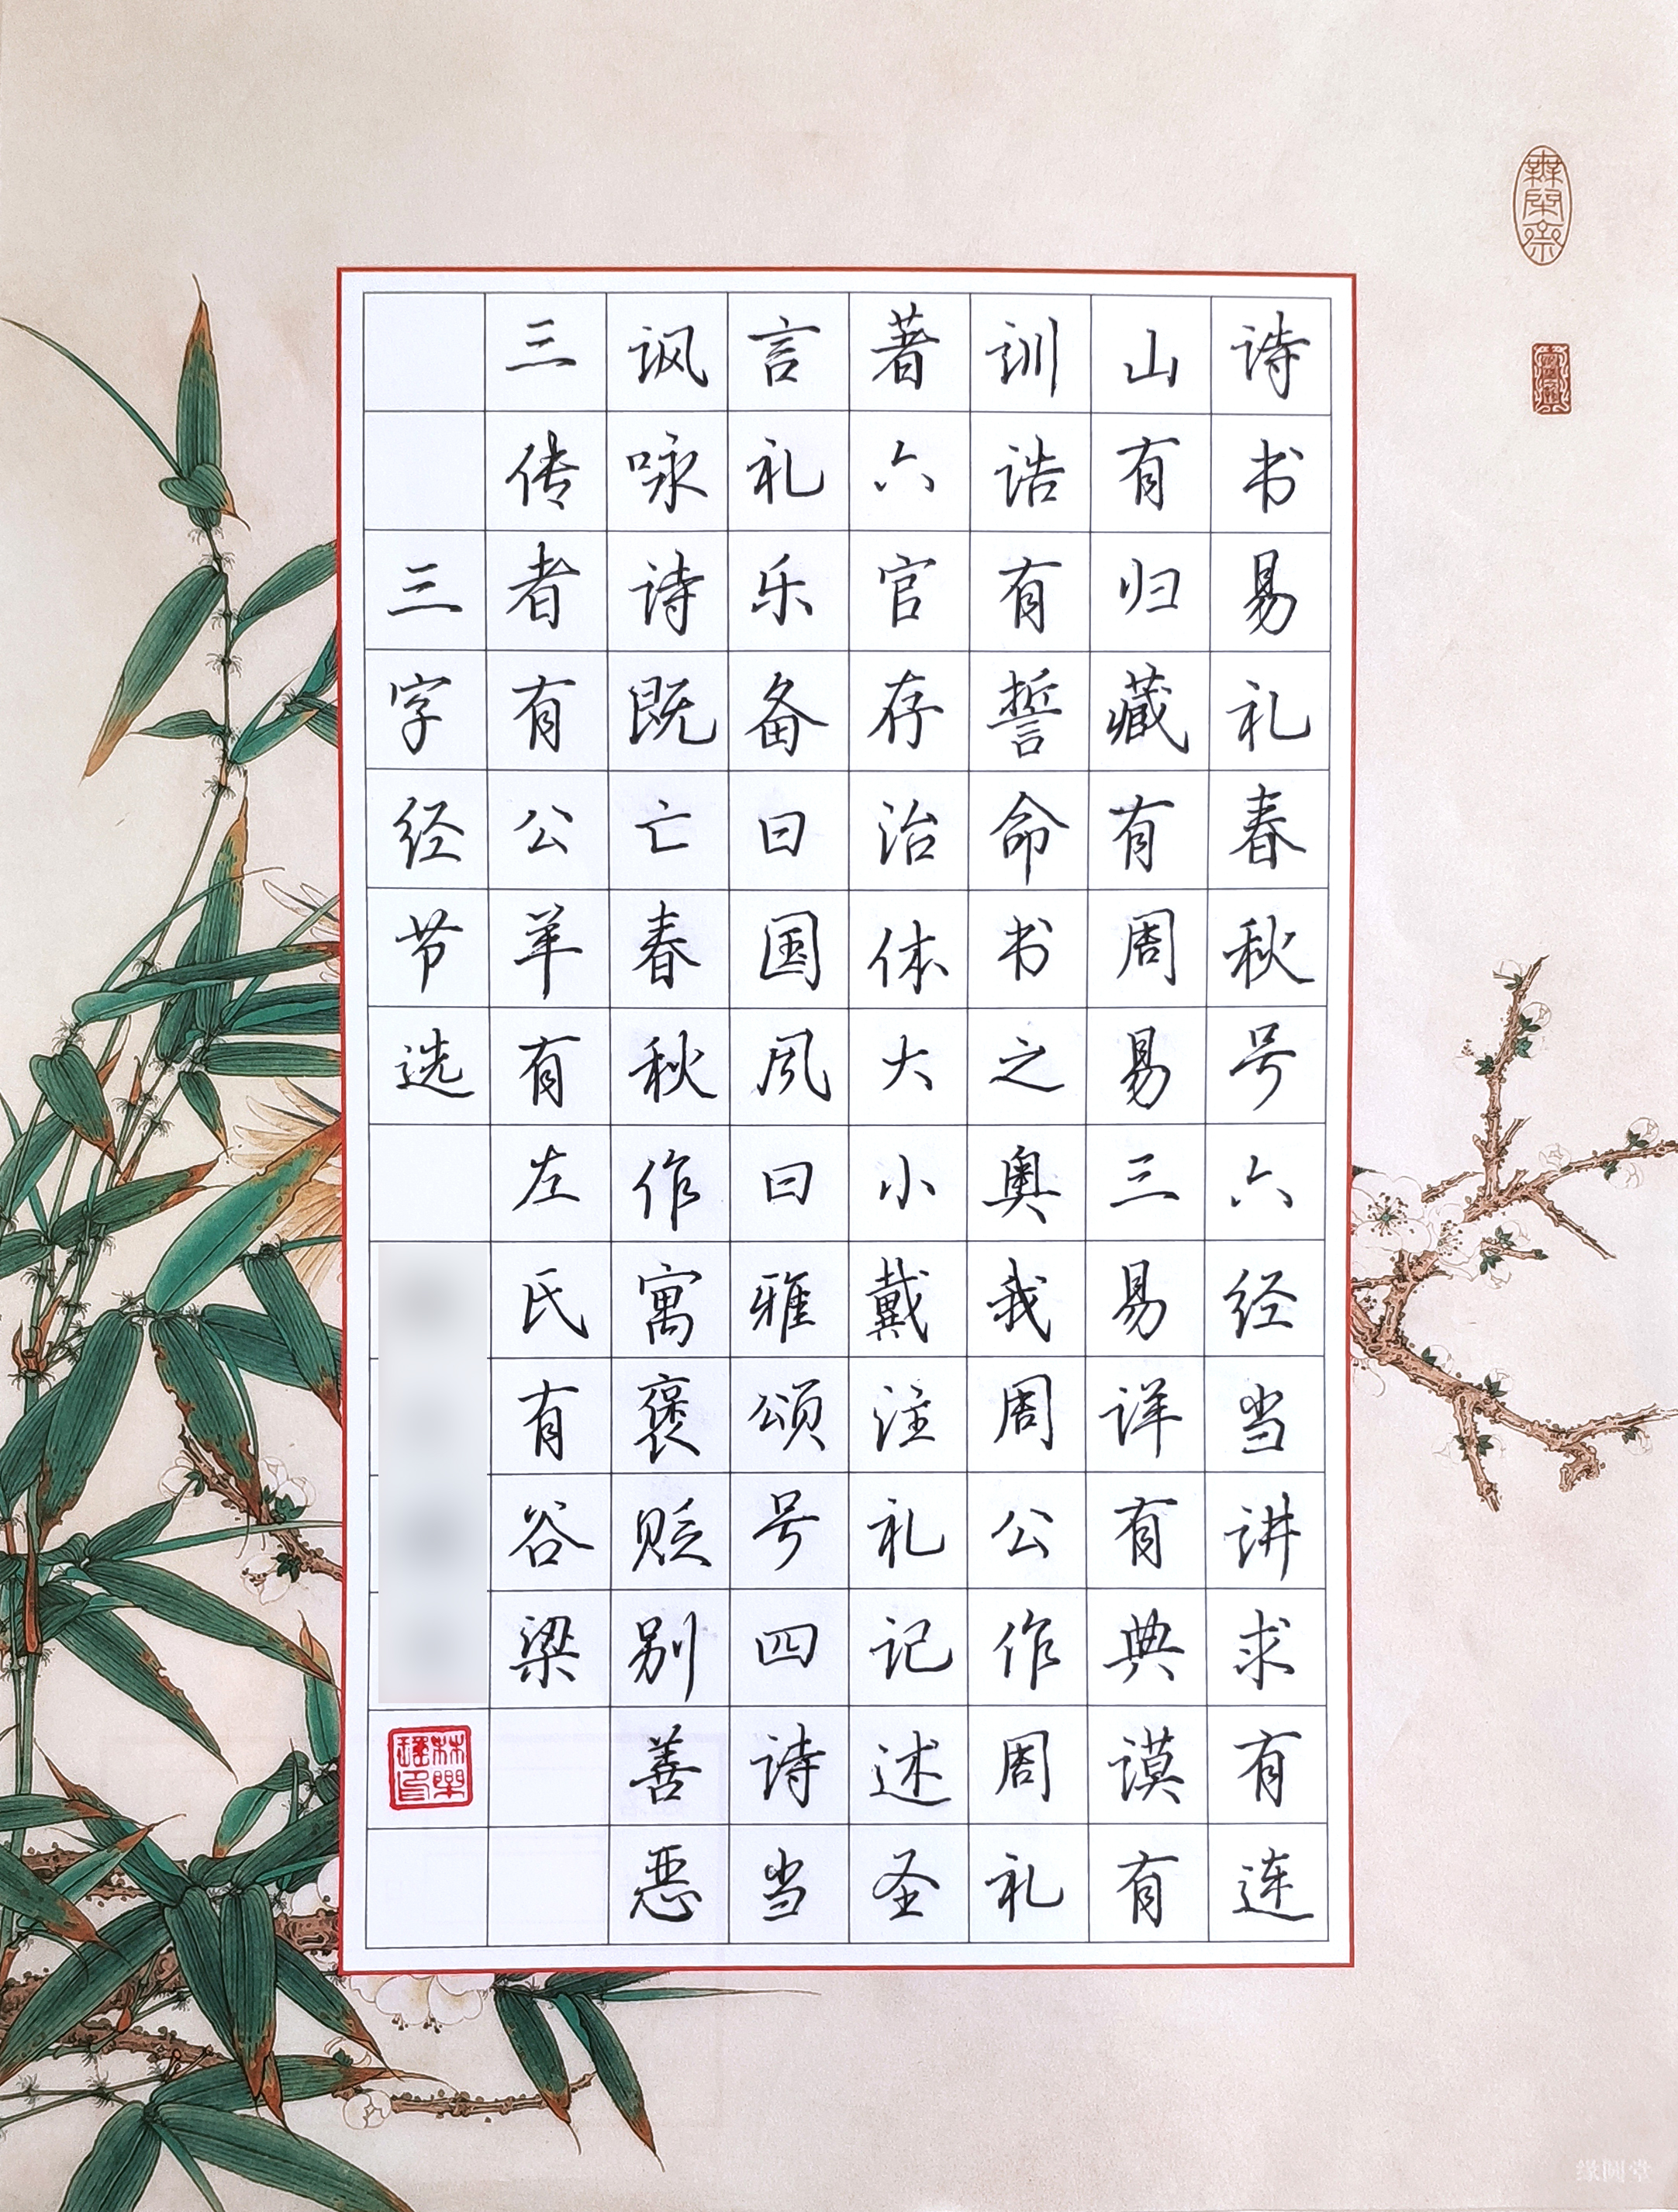 诗书易礼春秋号六经当讲求有连
山有归藏有周易三易详有典谟有
训诰有誓命书之奥我周公作周礼
著六官存治体大小戴注礼记述圣
言礼乐备曰国风曰雅颂号四诗当
讽咏诗既亡春秋作寓褒贬别善恶
三传者有公羊有左氏有谷梁
三字经节选
缘圆堂